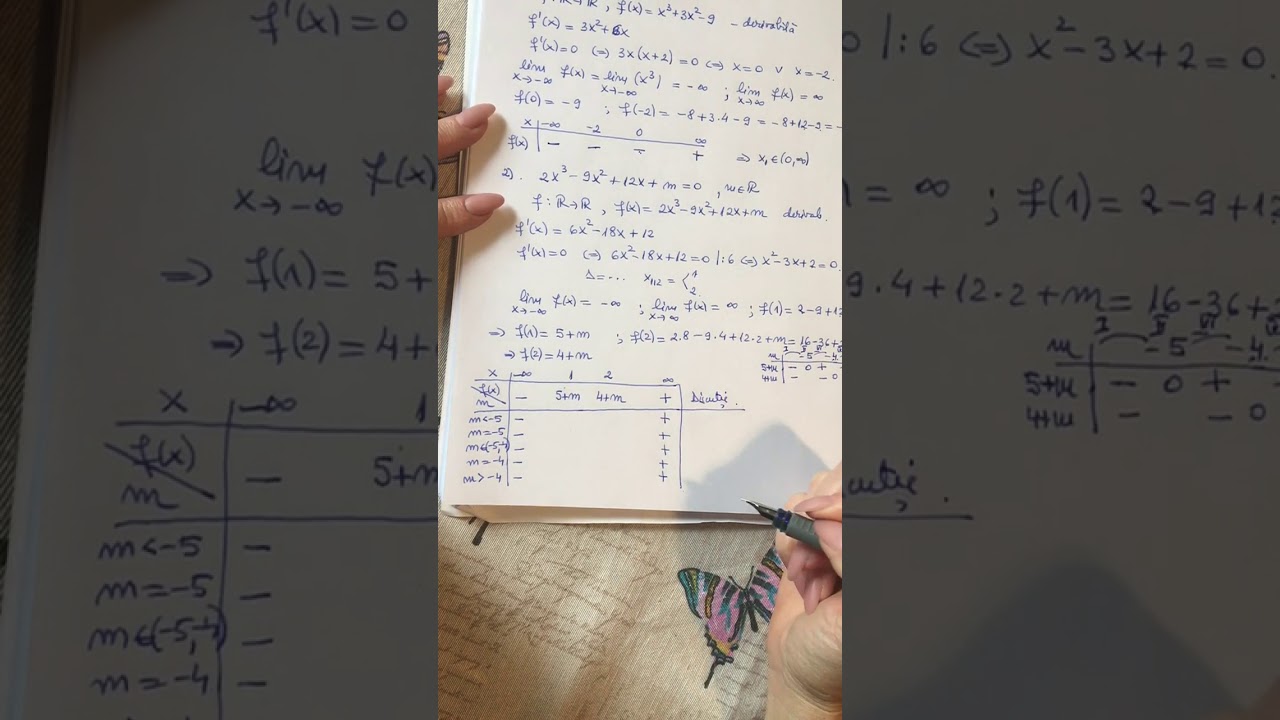 f : ℝ→ℝ , f(x) = x³+3x²-9 - derivabilă
f'(x) = 3x²+6x
f'(x)=0 ⇔ 3x(x+2) = 0 ⇔ x=0 ∨ x=-2.
lim f(x) = lim (x³) = -∞ ; lim f(x) = ∞
x→-∞ x→-∞ x→∞
f(0) = -9 ; f(-2) = -8+3·4-9 = -8+12-9=-
x | -∞ -2 0 ∞
f(x) | - - - + ⇒ x₁∈(0,∞)
2). 2x³-9x²+12x+m=0 , m∈ℝ
f : ℝ→ℝ , f(x) = 2x³-9x²+12x+m derivab.
f'(x) = 6x²-18x+12
f'(x)=0 ⇔ 6x²-18x+12=0 |:6 ⇔ x²-3x+2=0.
Δ=... x₁,₂ = ⟨ 1 2
lim f(x) = -∞ ; lim f(x) = ∞ ; f(1) = 2-9+12
x→-∞ x→∞
⇒ f(1) = 5+m ; f(2) = 2·8-9·4+12·2+m=16-36+
⇒ f(2) = 4+m
m | -5 -4
5+m | - 0 +
4+m | - - 0
x | -∞ 1 2 ∞
f(x) m | - 5+m 4+m + | Discuție.
m<-5 | - +
m=-5 | - +
m∈(-5,-4) | - +
m=-4 | - +
m>-4 | - +